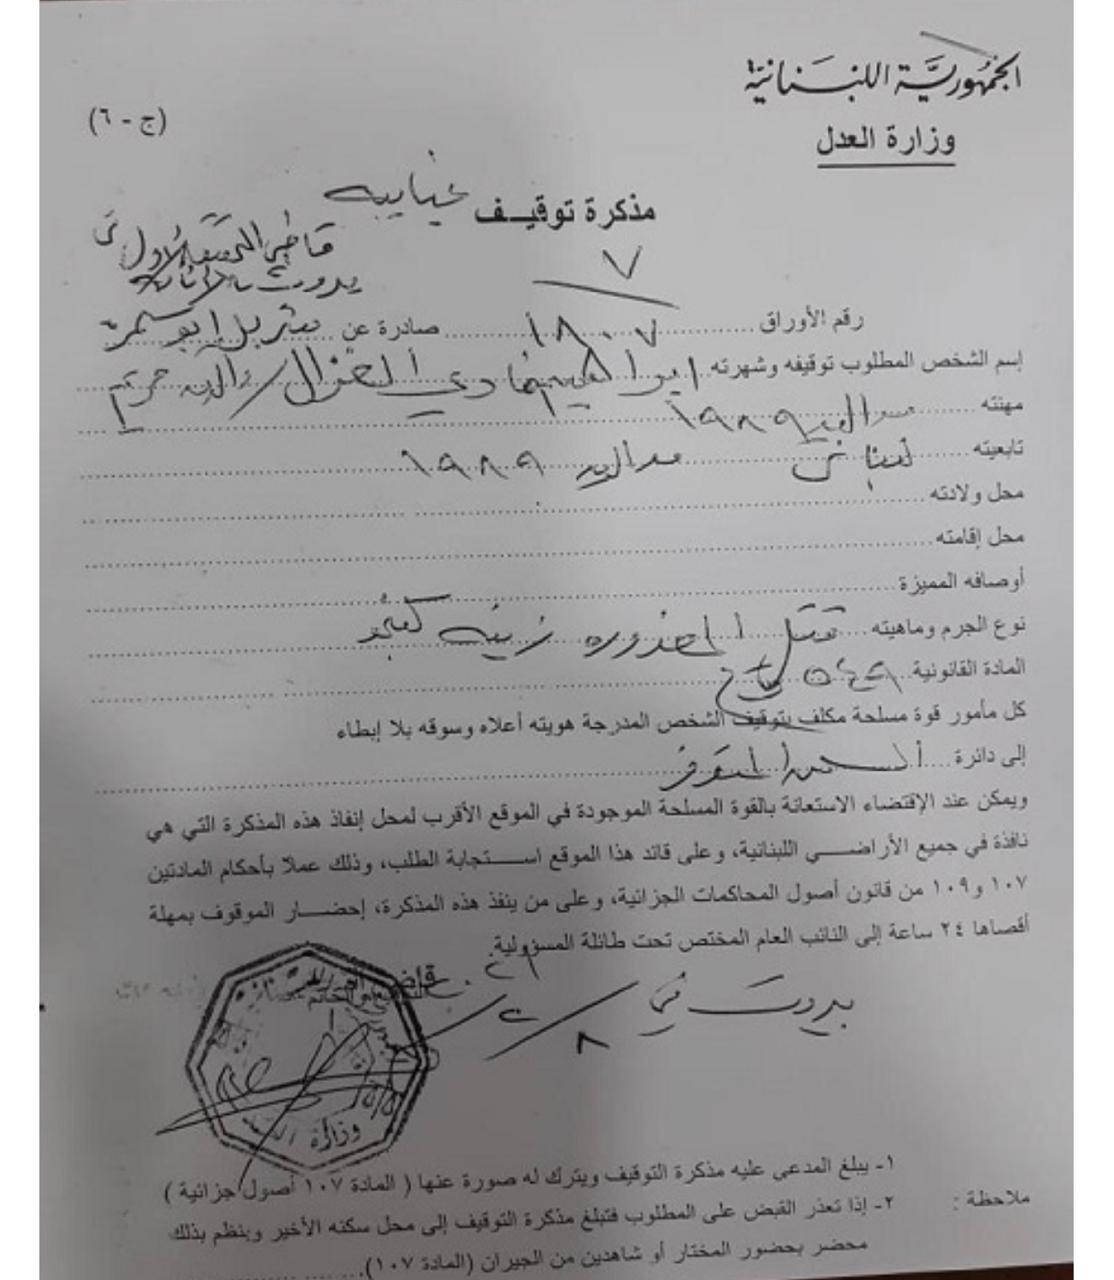 الجمهورية اللبنانية
وزارة العدل
(ج - ٦)
مذكرة توقيـف غيابيه
قاضي التحقيق الاول في
بيروت بالانابة
٧
رقم الأوراق ١٨٠٧ صادرة عن شربل ابو سمرة
إسم الشخص المطلوب توقيفه وشهرته ابراهيم الغزال والدته مريم
مهنته مواليد ١٩٨٩
تابعيته لبناني مواليد ١٩٨٩
محل ولادته
محل إقامته
أوصافه المميزة
نوع الجرم وماهيته قتل المغدوره زينه كنجو
المادة القانونية ٥٤٩
كل مأمور قوة مسلحة مكلف بتوقيف الشخص المدرجة هويته أعلاه وسوقه بلا إبطاء
إلى دائرة
ويمكن عند الإقتضاء الاستعانة بالقوة المسلحة الموجودة في الموقع الأقرب لمحل إنفاذ هذه المذكرة التي هي
نافذة في جميع الأراضـــي اللبنانية، وعلى قائد هذا الموقع استـــجابة الطلب، وذلك عملاً بأحكام المادتين
١٠٧ و١٠٩ من قانون أصول المحاكمات الجزائية، وعلى من ينفذ هذه المذكرة، إحضـــار الموقوف بمهلة
أقصاها ٢٤ ساعة إلى النائب العام المختص تحت طائلة المسؤولية.
بيروت في ٨/٢/
وزارة
ملاحظة :
١- يبلغ المدعى عليه مذكرة التوقيف ويترك له صورة عنها ( المادة ١٠٧ أصول جزائية )
٢- إذا تعذر القبض على المطلوب فتبلغ مذكرة التوقيف إلى محل سكنه الأخير وينظم بذلك
محضر بحضور المختار أو شاهدين من الجيران (المادة ١٠٧)